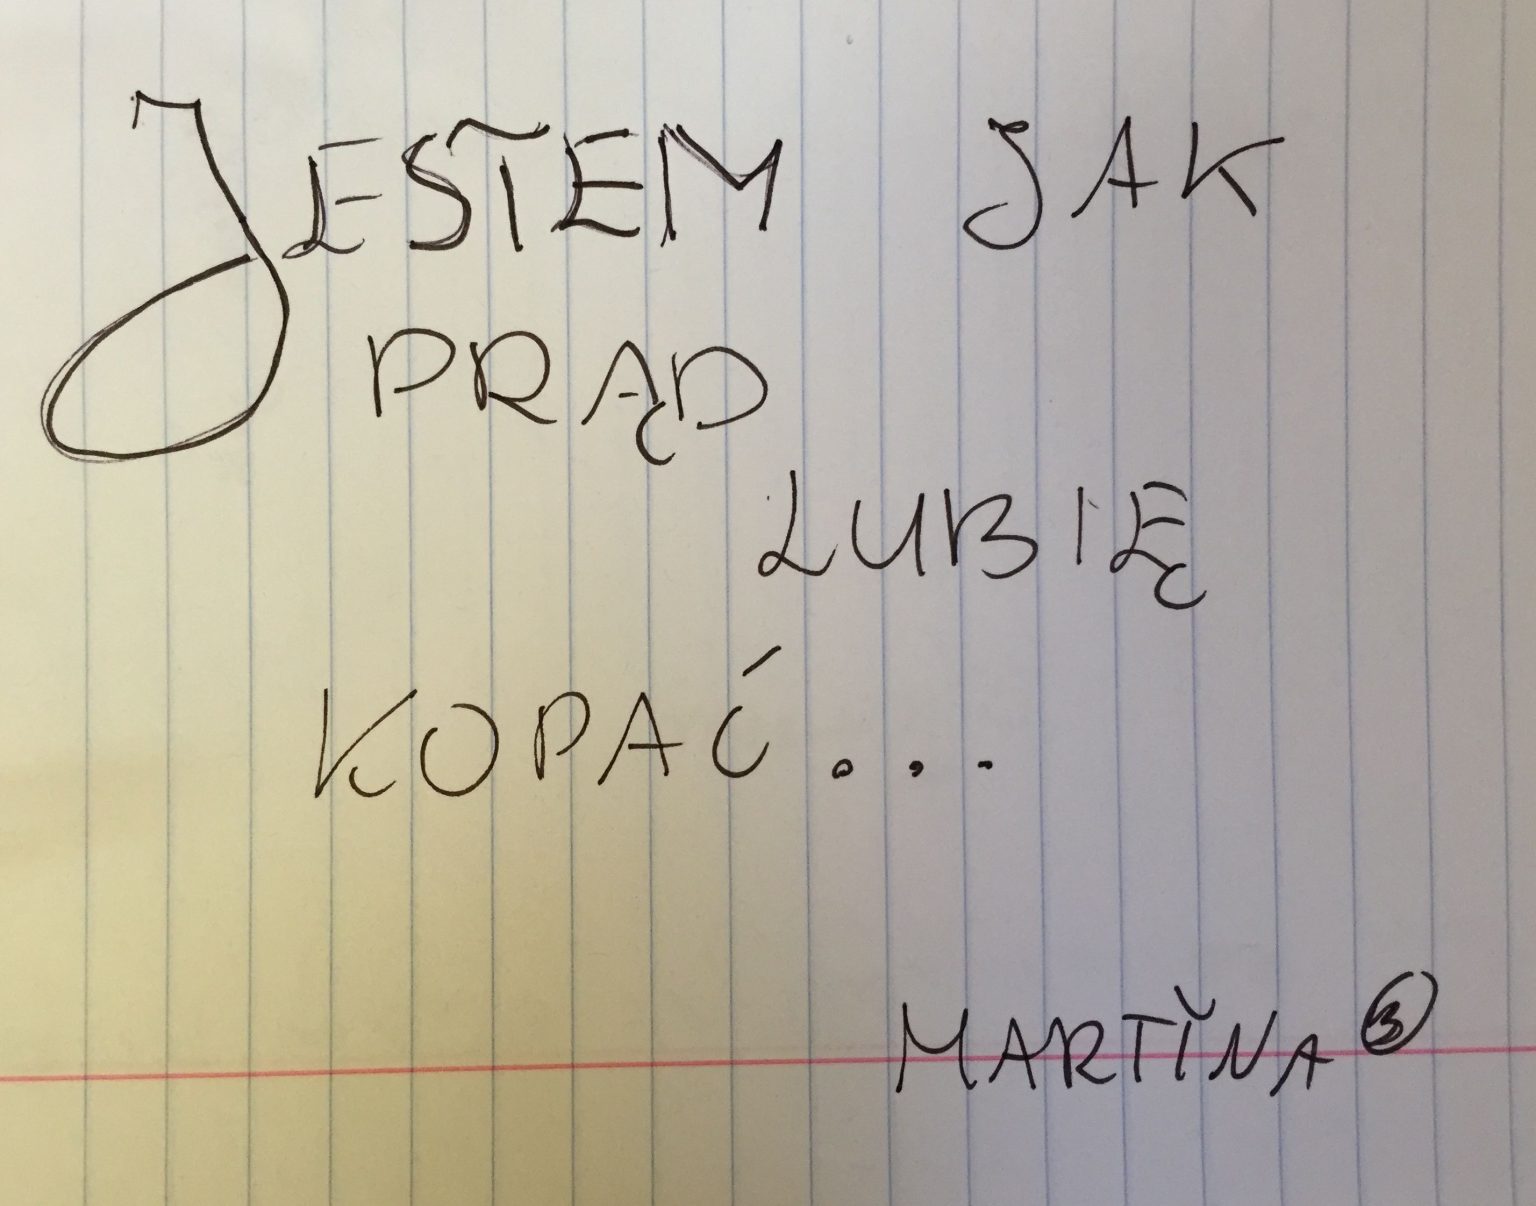 JESTEM JAK
PRĄD
LUBIĘ
KOPAĆ...
MARTĬNA ③